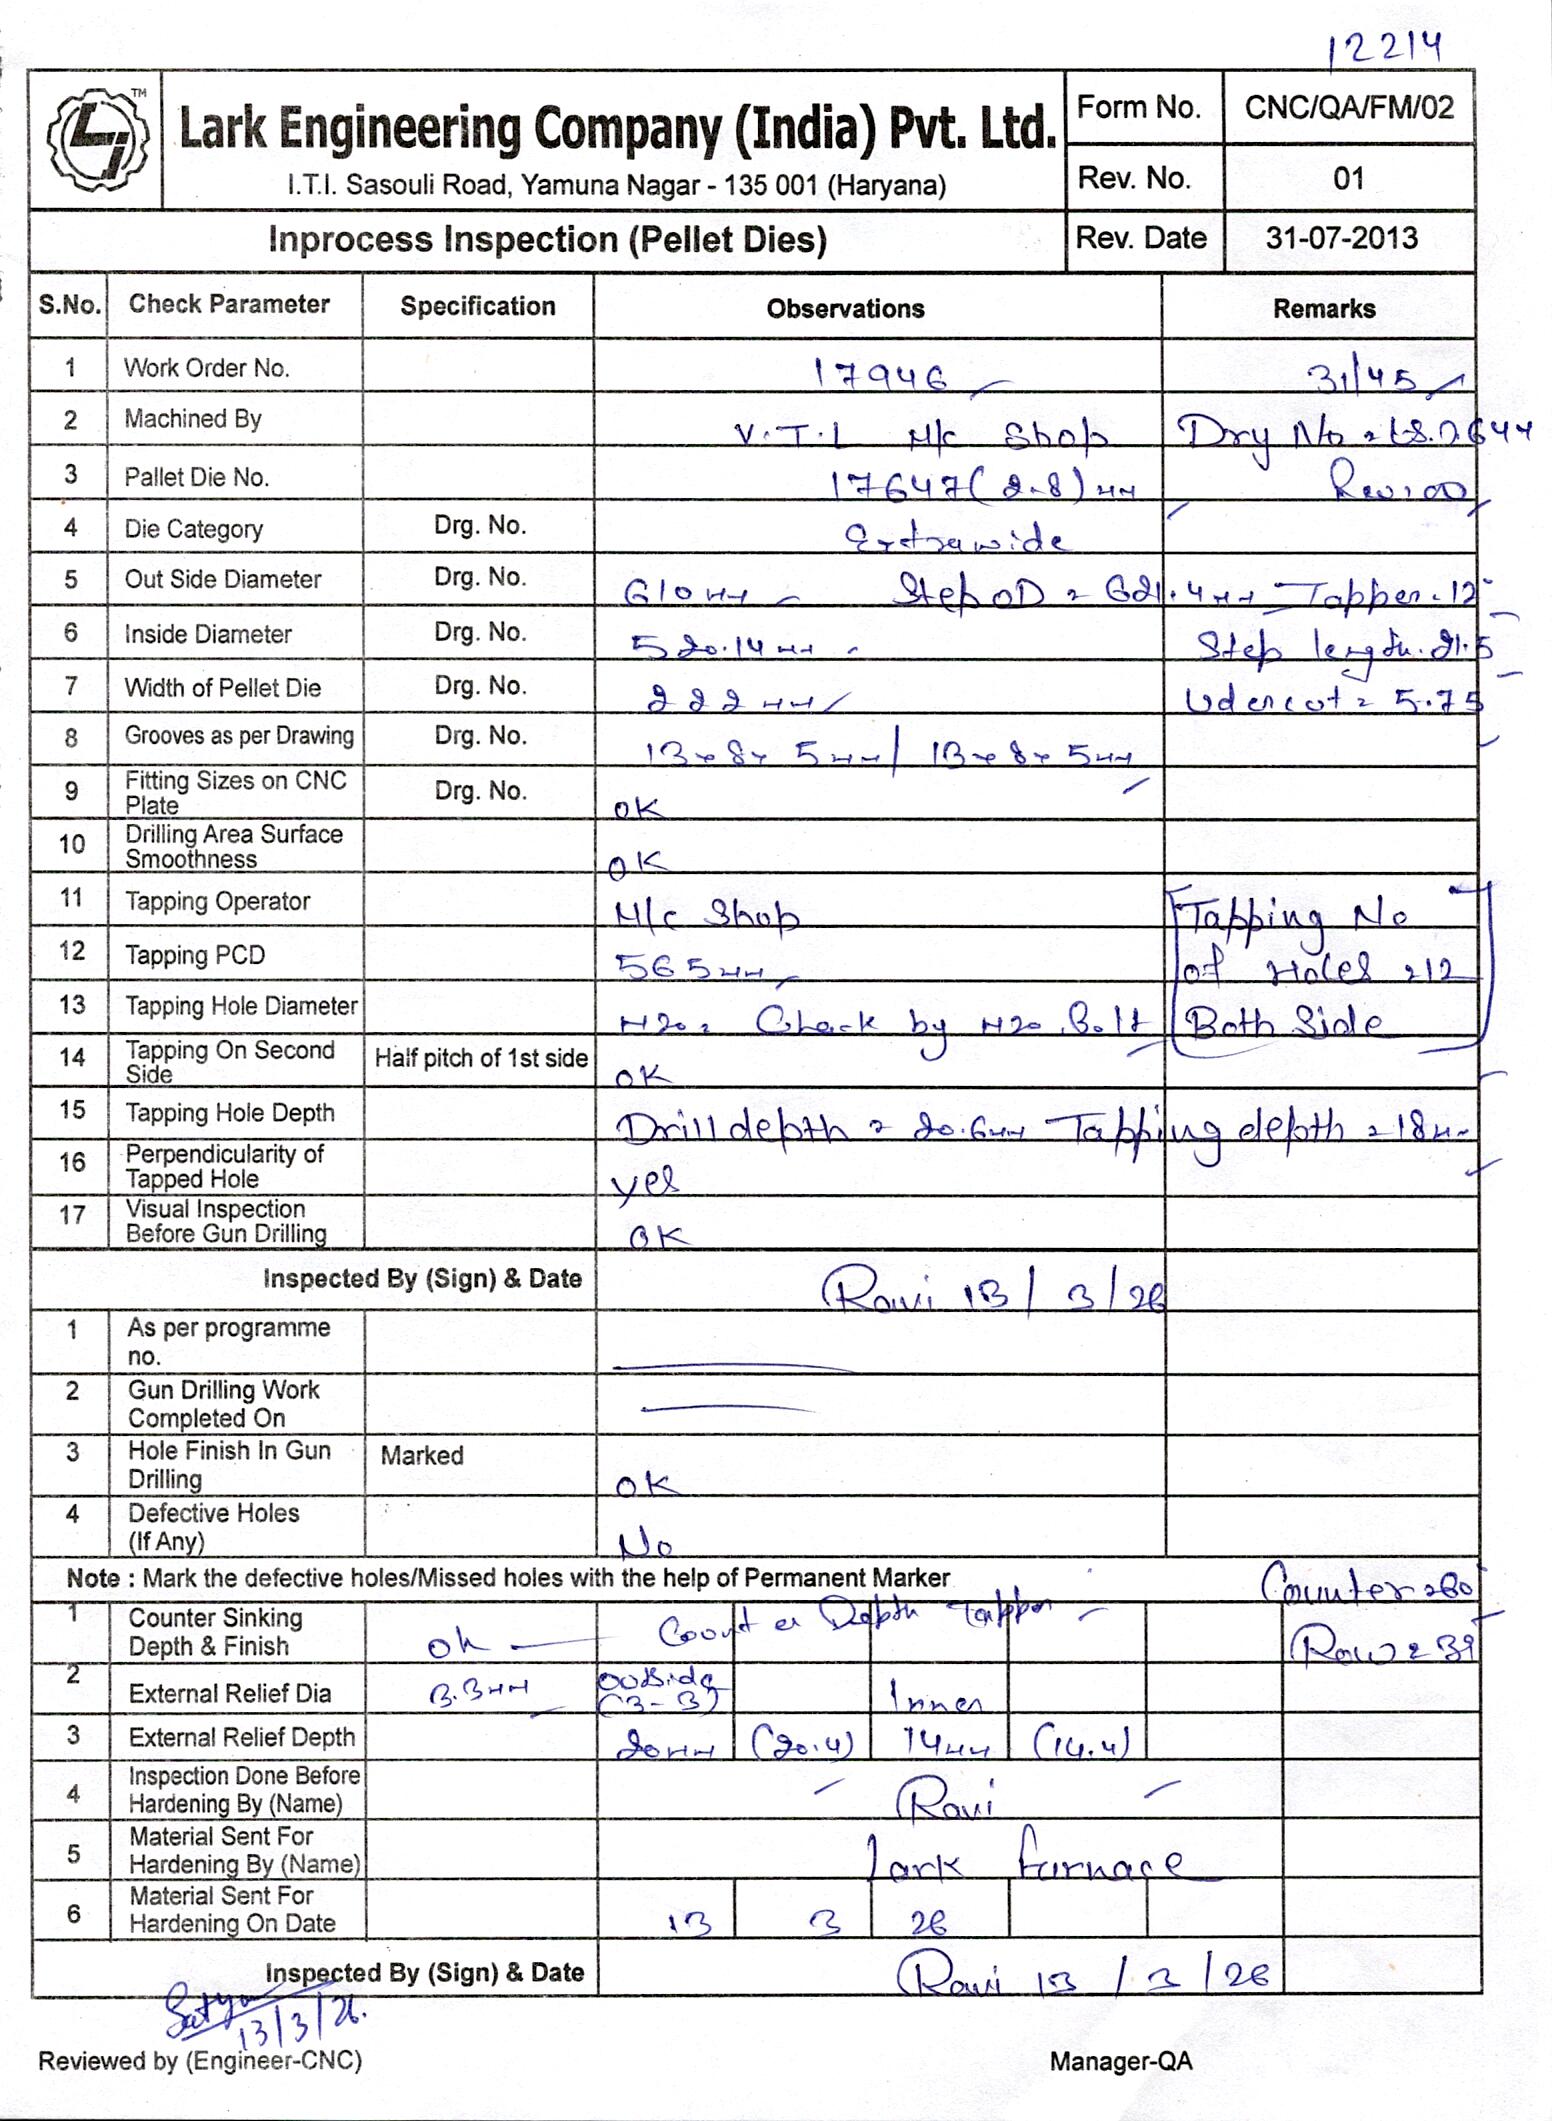 12214
TM
Lark Engineering Company (India) Pvt. Ltd.
I.T.I. Sasouli Road, Yamuna Nagar - 135 001 (Haryana)
Form No. CNC/QA/FM/02
Rev. No. 01
Inprocess Inspection (Pellet Dies) Rev. Date 31-07-2013
S.No. Check Parameter Specification Observations Remarks
1 Work Order No. 17946 31/45
2 Machined By V.T.L M/c Shop Dry No
3 Pallet Die No. 17647(2.8)mm Rev:00
4 Die Category Drg. No. Extrawide
5 Out Side Diameter Drg. No. 610mm Step OD = 621.4mm Tapper. 12°
6 Inside Diameter Drg. No. 520.14mm Step length. 21.5
7 Width of Pellet Die Drg. No. 222mm Udercut = 5.75
8 Grooves as per Drawing Drg. No. 13x8x5mm/13x8x5mm
9 Fitting Sizes on CNC Plate Drg. No. OK
10 Drilling Area Surface Smoothness OK
11 Tapping Operator M/c Shop Tapping No
12 Tapping PCD 565mm of Holes =12
13 Tapping Hole Diameter M20= Check by M20 Bolt Both Side
14 Tapping On Second Side Half pitch of 1st side OK
15 Tapping Hole Depth Drill depth = 20.6mm Tapping depth =18mm
16 Perpendicularity of Tapped Hole yes
17 Visual Inspection Before Gun Drilling OK
Inspected By (Sign) & Date Ravi 13/3/26
1 As per programme no.
2 Gun Drilling Work Completed On
3 Hole Finish In Gun Drilling Marked OK
4 Defective Holes (If Any) No
Note : Mark the defective holes/Missed holes with the help of Permanent Marker Counter =60°
1 Counter Sinking Depth & Finish ok Counter Depth Tapper Row = 39
2 External Relief Dia 3.3mm Outside (3-3) Inner
3 External Relief Depth 20mm (20.4) 14mm (14.4)
4 Inspection Done Before Hardening By (Name) Ravi
5 Material Sent For Hardening By (Name) Lark furnace
6 Material Sent For Hardening On Date 13 3 26
Inspected By (Sign) & Date Ravi 13/3/26
Satyam
13/3/26.
Reviewed by (Engineer-CNC) Manager-QA